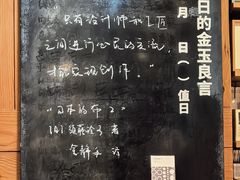 日的金玉良言
月 日（ ）值日
"只有设计师和工匠
之间进行心灵的交流,
才能实现创作。"
《日本的布2》
[日] 须藤玲子 著